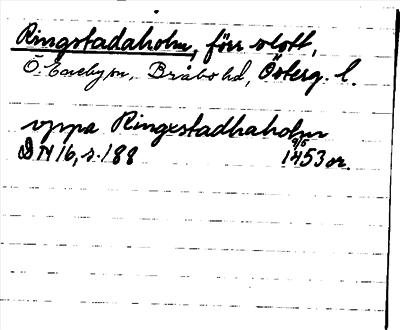 Ringstadaholm, förr slott,
Ö. Eneby sn, Bråbo hd, Österg. l.
uppa Ringxstadhaholm
DN 16, s. 188 9/5 1453 or.